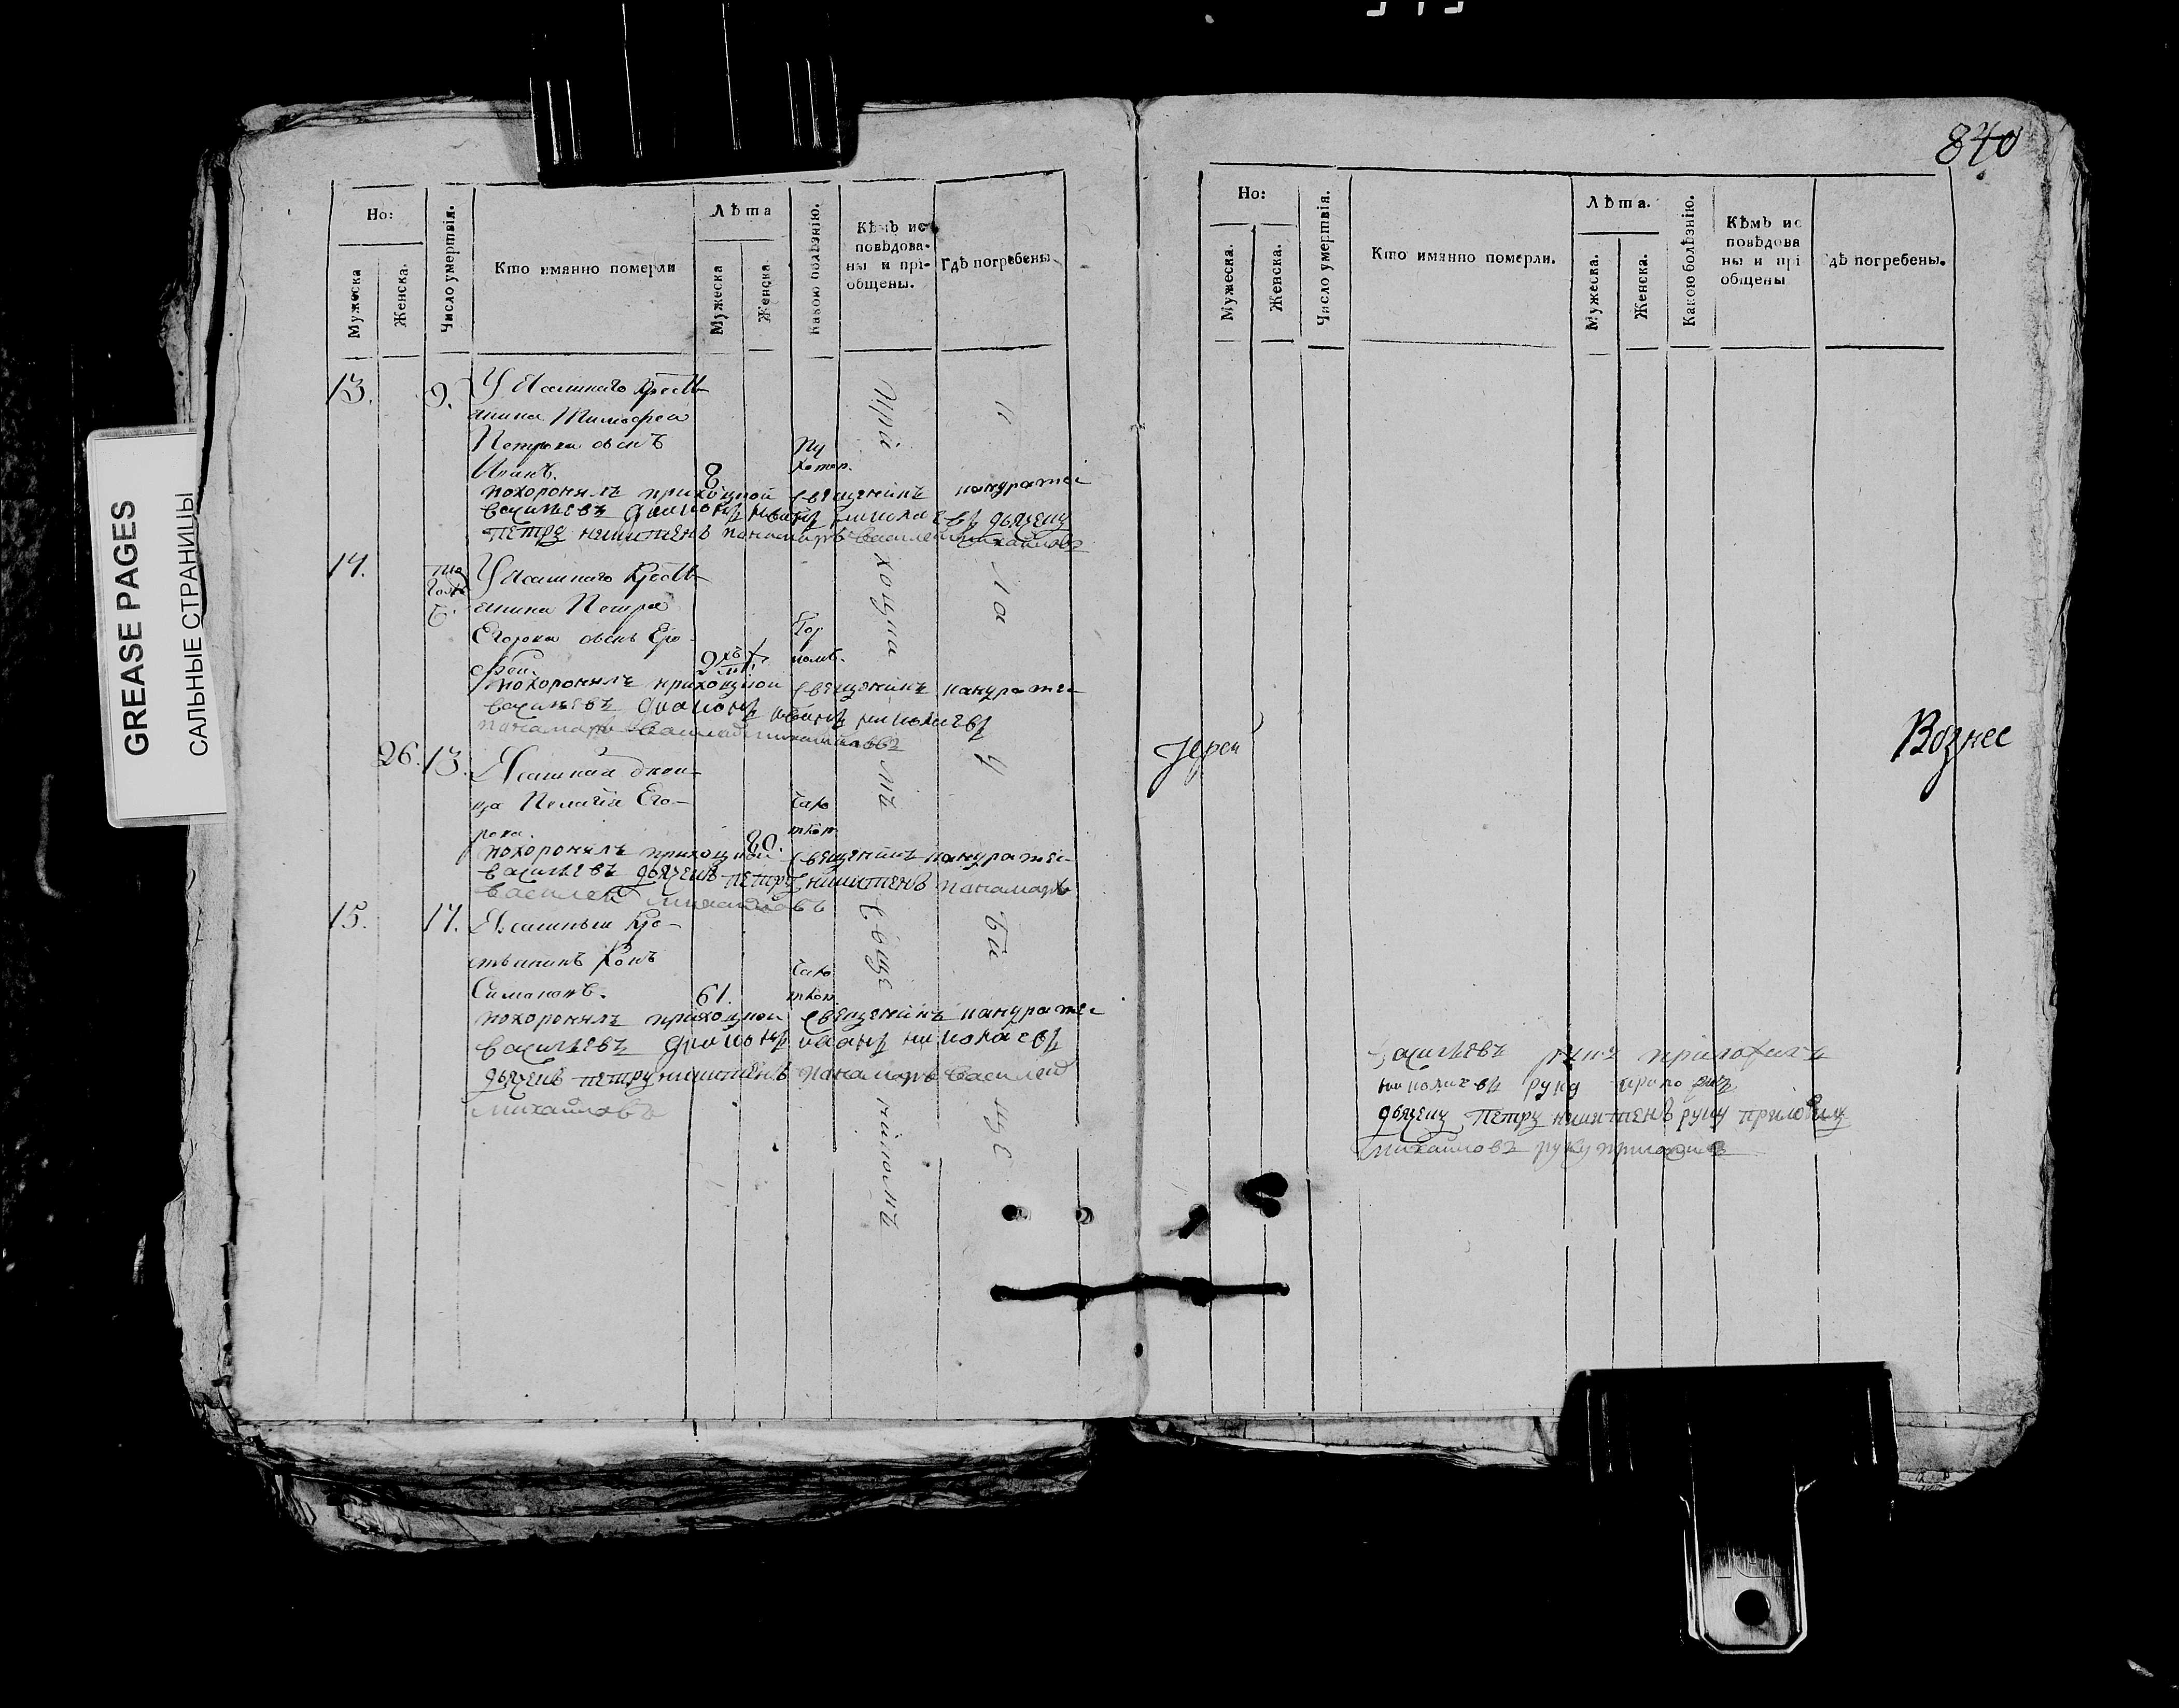 GREASE PAGES
САЛЬНЫЕ СТРАНИЦЫ
Но:
Мужеска
Женска.
Число умертвія.
Кто имянно померли
Лѣта
Мужеска
Женска.
Какою болѣзнію.
Кѣмъ ис
повѣдова-
ны и прі-
общены.
Гдѣ погребены
13. 9. У Ясашнаго кресть
янина Тимофея
Петрова сынъ
Иванъ. 8.
похоронилъ приходной священикъ пандратей
василевъ диаконъ иванъ николаевъ дьячекъ
петръ никитенъ понамарь василей михайловъ
14. 6. У Ясашнаго кресть
янина Петра
Егорова сынъ Еро-
фей. 2хъ
похоронилъ приходной священикъ пандратей
василевъ диаконъ иванъ николаевъ
понамарь василей михайловъ
26. 13. Ясашная вдои-
ца Пелагія Его-
рова. 80.
похоронилъ приходной священикъ пандратей
василевъ дьячекъ петръ никитенъ понамарь
василей михайловъ
15. 17. Ясашный кре-
стьянинъ
Симоновъ. 61.
похоронилъ приходной священикъ пандратей
василевъ диаконъ иванъ николаевъ
дьячекъ петръ никитенъ понамарь василей
михайловъ
При
ходна
мъ
свяще
никомъ
На
кла
д
би
щѣ
840
Но:
Мужеска.
Женска.
Число умертвія.
Кто имянно померли.
Лѣта.
Мужеска.
Женска.
Какою болѣзнію.
Кѣмъ ис
повѣдова
ны и прі
общены
Гдѣ погребены.
Іерей
Вознес
василевъ руку приложилъ
николаевъ руку приложилъ
дьячекъ петръ никитенъ руку приложилъ
михайловъ руку приложилъ